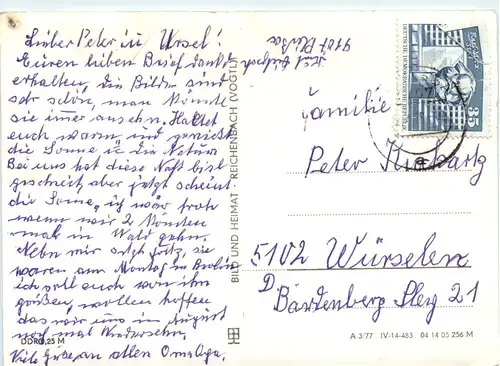 Lieber Peter u Ursel!
Euren lieben Brief dankd
erhalten, die Bilder sind
sehr schön, man könnte
sie imer ansehn. Haltet
euch warm und genießt
die Sonne u die Natur.
Bei uns hat diese Nacht
geschneit, aber jetzt scheint
die Sonne, ich wär froh
wenn wir 2 könnten
mal in Wald gehn.
Nebn mir sitzt Fritz, sie
waren am Montag in Berlin
ich soll euch von ihm
grüßen, wollen hoffen
das wir uns im August
noch mal Wiedersehn.
Viele Grüße an allen Oma
DDR 0,25 M
BILD UND HEIMAT REICHENBACH (VOGTL)
9107
DEUTSCHE DEMOKRATISCHE REPUBLIK
35
Familie
Peter
5102 Würselen
D
Bardenberg 21
A 3/77 IV-14-483 04 14 05 256 M